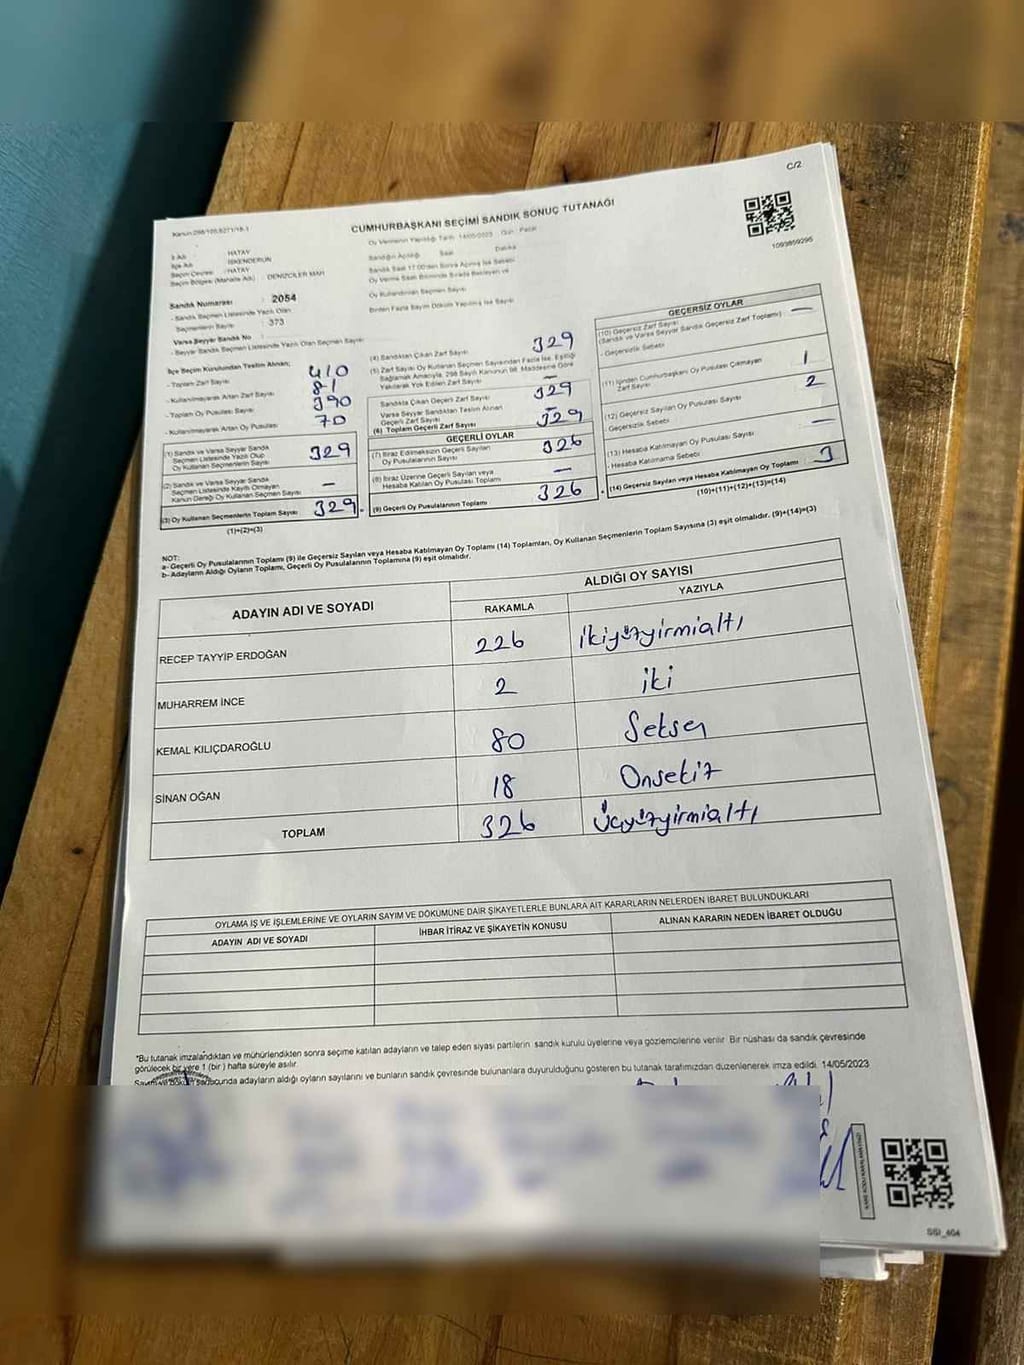 C/2
Kanun:298/105,6271/18-1
CUMHURBAŞKANI SEÇİMİ SANDIK SONUÇ TUTANAĞI
1093859295
İl Adı : HATAY
İlçe Adı : İSKENDERUN
Seçim Çevresi : HATAY
Seçim Bölgesi (Mahalle Adı) : DENİZCİLER MAH
Oy Vermenin Yapıldığı Tarih: 14/05/2023 Gün: Pazar
Sandığın Açıldığı Saat Dakika
Sandık Saat 17:00'den Sonra Açılmış İse Sebebi
Oy Verme Saati Bitiminde Sırada Bekleyen ve
Oy Kullandırılan Seçmen Sayısı
Birden Fazla Sayım Döküm Yapılmış İse Sayısı
Sandık Numarası : 2054
- Sandık Seçmen Listesinde Yazılı Olan
Seçmenlerin Sayısı : 373
Varsa Seyyar Sandık No :
- Seyyar Sandık Seçmen Listesinde Yazılı Olan Seçmen Sayısı:
İlçe Seçim Kurulundan Teslim Alınan;
- Toplam Zarf Sayısı 410
- Kullanılmayarak Artan Zarf Sayısı 81
- Toplam Oy Pusulası Sayısı 390
- Kullanılmayarak Artan Oy Pusulası 70
(1) Sandık ve Varsa Seyyar Sandık
Seçmen Listesinde Yazılı Olup
Oy Kullanan Seçmenlerin Sayısı 329
(2) Sandık ve Varsa Seyyar Sandık
Seçmen Listesinde Kayıtlı Olmayan
Kanun Gereği Oy Kullanan Seçmen Sayısı –
(3) Oy Kullanan Seçmenlerin Toplam Sayısı 329
(1)+(2)=(3)
(4) Sandıktan Çıkan Zarf Sayısı 329
(5) Zarf Sayısı Oy Kullanan Seçmen Sayısından Fazla İse, Eşitliği
Sağlamak Amacıyla, 298 Sayılı Kanunun 98. Maddesine Göre
Yakılarak Yok Edilen Zarf Sayısı –
Sandıkta Çıkan Geçerli Zarf Sayısı 329
Varsa Seyyar Sandıktan Teslim Alınan
Geçerli Zarf Sayısı –
(6) Toplam Geçerli Zarf Sayısı 329
GEÇERLİ OYLAR
(7) İtiraz Edilmeksizin Geçerli Sayılan
Oy Pusulalarının Sayısı 326
(8) İtiraz Üzerine Geçerli Sayılan veya
Hesaba Katılan Oy Pusulası Toplamı –
(9) Geçerli Oy Pusulalarının Toplamı 326
GEÇERSİZ OYLAR
(10) Geçersiz Zarf Sayısı
(Sandık ve Varsa Seyyar Sandık Geçersiz Zarf Toplamı) –
- Geçersizlik Sebebi
(11) İçinden Cumhurbaşkanı Oy Pusulası Çıkmayan
Zarf Sayısı 1
(12) Geçersiz Sayılan Oy Pusulası Sayısı 2
- Geçersizlik Sebebi
(13) Hesaba Katılmayan Oy Pusulası Sayısı –
- Hesaba Katılmama Sebebi
(14) Geçersiz Sayılan veya Hesaba Katılmayan Oy Toplamı 3
(10)+(11)+(12)+(13)=(14)
NOT:
a- Geçerli Oy Pusulalarının Toplamı (9) ile Geçersiz Sayılan veya Hesaba Katılmayan Oy Toplamı (14) Toplamları, Oy Kullanan Seçmenlerin Toplam Sayısına (3) eşit olmalıdır. (9)+(14)=(3)
b- Adayların Aldığı Oyların Toplamı, Geçerli Oy Pusulalarının Toplamına (9) eşit olmalıdır.
ADAYIN ADI VE SOYADI
ALDIĞI OY SAYISI
RAKAMLA YAZIYLA
RECEP TAYYİP ERDOĞAN 226 ikiyüzyirmialtı
MUHARREM İNCE 2 iki
KEMAL KILIÇDAROĞLU 80 Seksen
SİNAN OĞAN 18 Onsekiz
TOPLAM 326 Üçyüzyirmialtı
OYLAMA İŞ VE İŞLEMLERİNE VE OYLARIN SAYIM VE DÖKÜMÜNE DAİR ŞİKAYETLERLE BUNLARA AİT KARARLARIN NELERDEN İBARET BULUNDUKLARI
ADAYIN ADI VE SOYADI İHBAR İTİRAZ VE ŞİKAYETİN KONUSU ALINAN KARARIN NEDEN İBARET OLDUĞU
*Bu tutanak imzalandıktan ve mühürlendikten sonra seçime katılan adayların ve talep eden siyasi partilerin sandık kurulu üyelerine veya gözlemcilerine verilir. Bir nüshası da sandık çevresinde
görülecek bir yere 1 (bir) hafta süreyle asılır.
Sayım ve döküm sonucunda adayların aldığı oyların sayılarını ve bunların sandık çevresinde bulunanlara duyurulduğunu gösteren bu tutanak tarafımızdan düzenlenerek imza edildi. 14/05/2023
SSI_404